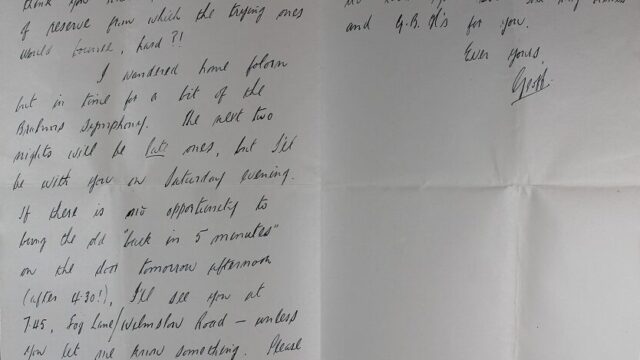 of reserve from which the trying ones
would , hard ?!
I wandered home folorn
but in time for a bit of the
Brahms Symphony. The next two
nights will be late ones, but I'll
be with you on Saturday evening.
If there is no opportunity to
bring the old "back in 5 minutes"
on the door tomorrow afternoon
(after 4.30!), I'll see you at
7.45, Fog Lane/Wilmslow Road — unless
you let me know something. Please
and G.B. H's for you.
Ever yours,
Geoff.